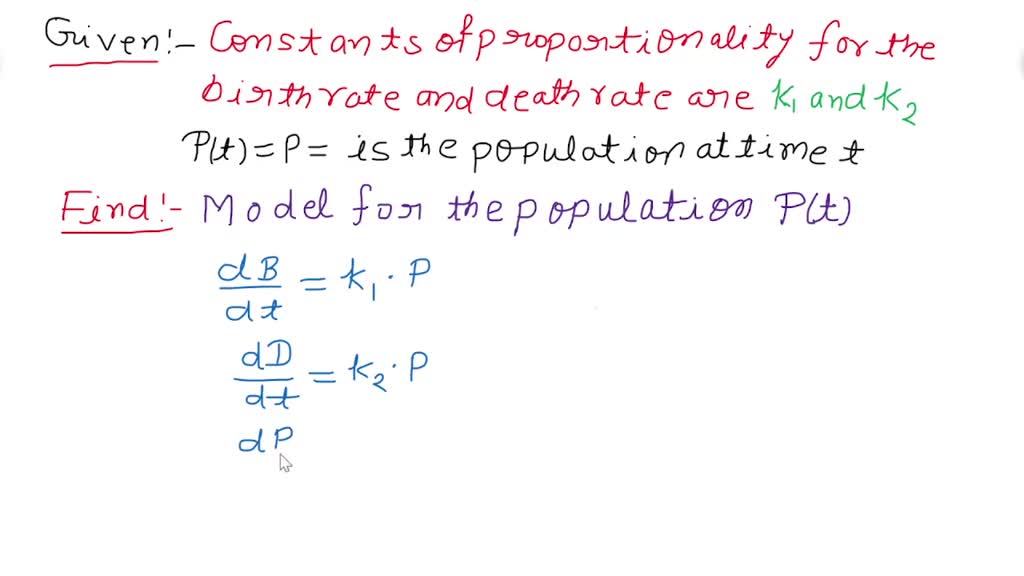 Given:- Constants of proportionality for the
birth rate and death rate are k₁ and k₂
P(t) = P = is the population at time t
Find:- Model for the population P(t)
dB/dt = k₁ · P
dD/dt = k₂ · P
dP